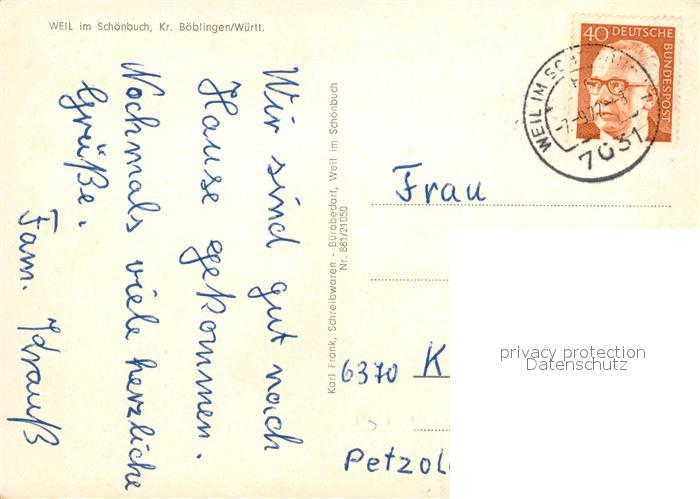 WEIL im Schönbuch, Kr. Böblingen/Württ.
Wir sind gut nach
Hause gekommen.
Nochmals viele herzliche
Grüße.
Fam. Krauß
Karl Frank, Schreibwaren - Bürobedarf, Weil im Schönbuch
Nr. 881/21050
40 DEUTSCHE
BUNDESPOST
WEIL IM
7031
Frau
6370 K
Petzol
privacy protection
Datenschutz